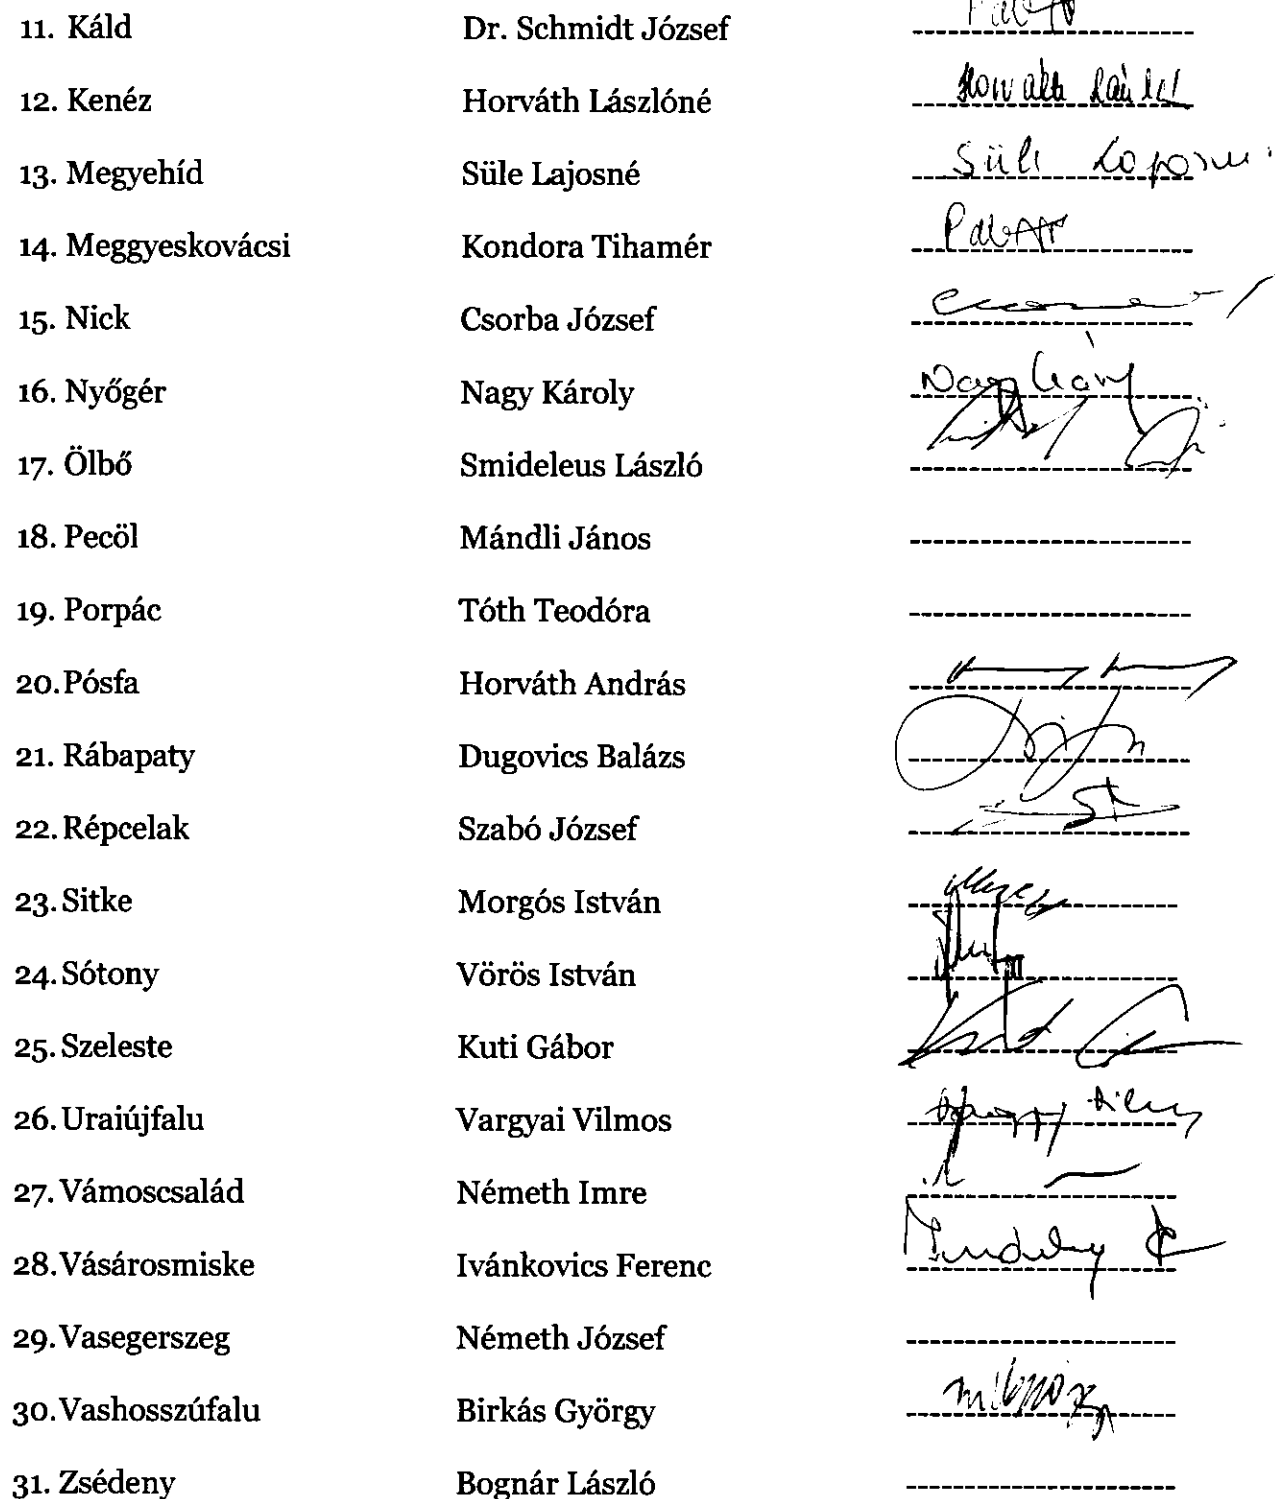 11. Káld Dr. Schmidt József
12. Kenéz Horváth Lászlóné Horváth
13. Megyehíd Süle Lajosné Süle Lajosné
14. Meggyeskovácsi Kondora Tihamér
15. Nick Csorba József
16. Nyőgér Nagy Károly Nagy Károly
17. Ölbő Smideleus László
18. Pecöl Mándli János
19. Porpác Tóth Teodóra
20. Pósfa Horváth András
21. Rábapaty Dugovics Balázs
22. Répcelak Szabó József
23. Sitke Morgós István
24. Sótony Vörös István
25. Szeleste Kuti Gábor
26. Uraiújfalu Vargyai Vilmos
27. Vámoscsalád Németh Imre
28. Vásárosmiske Ivánkovics Ferenc
29. Vasegerszeg Németh József
30. Vashosszúfalu Birkás György
31. Zsédeny Bognár László